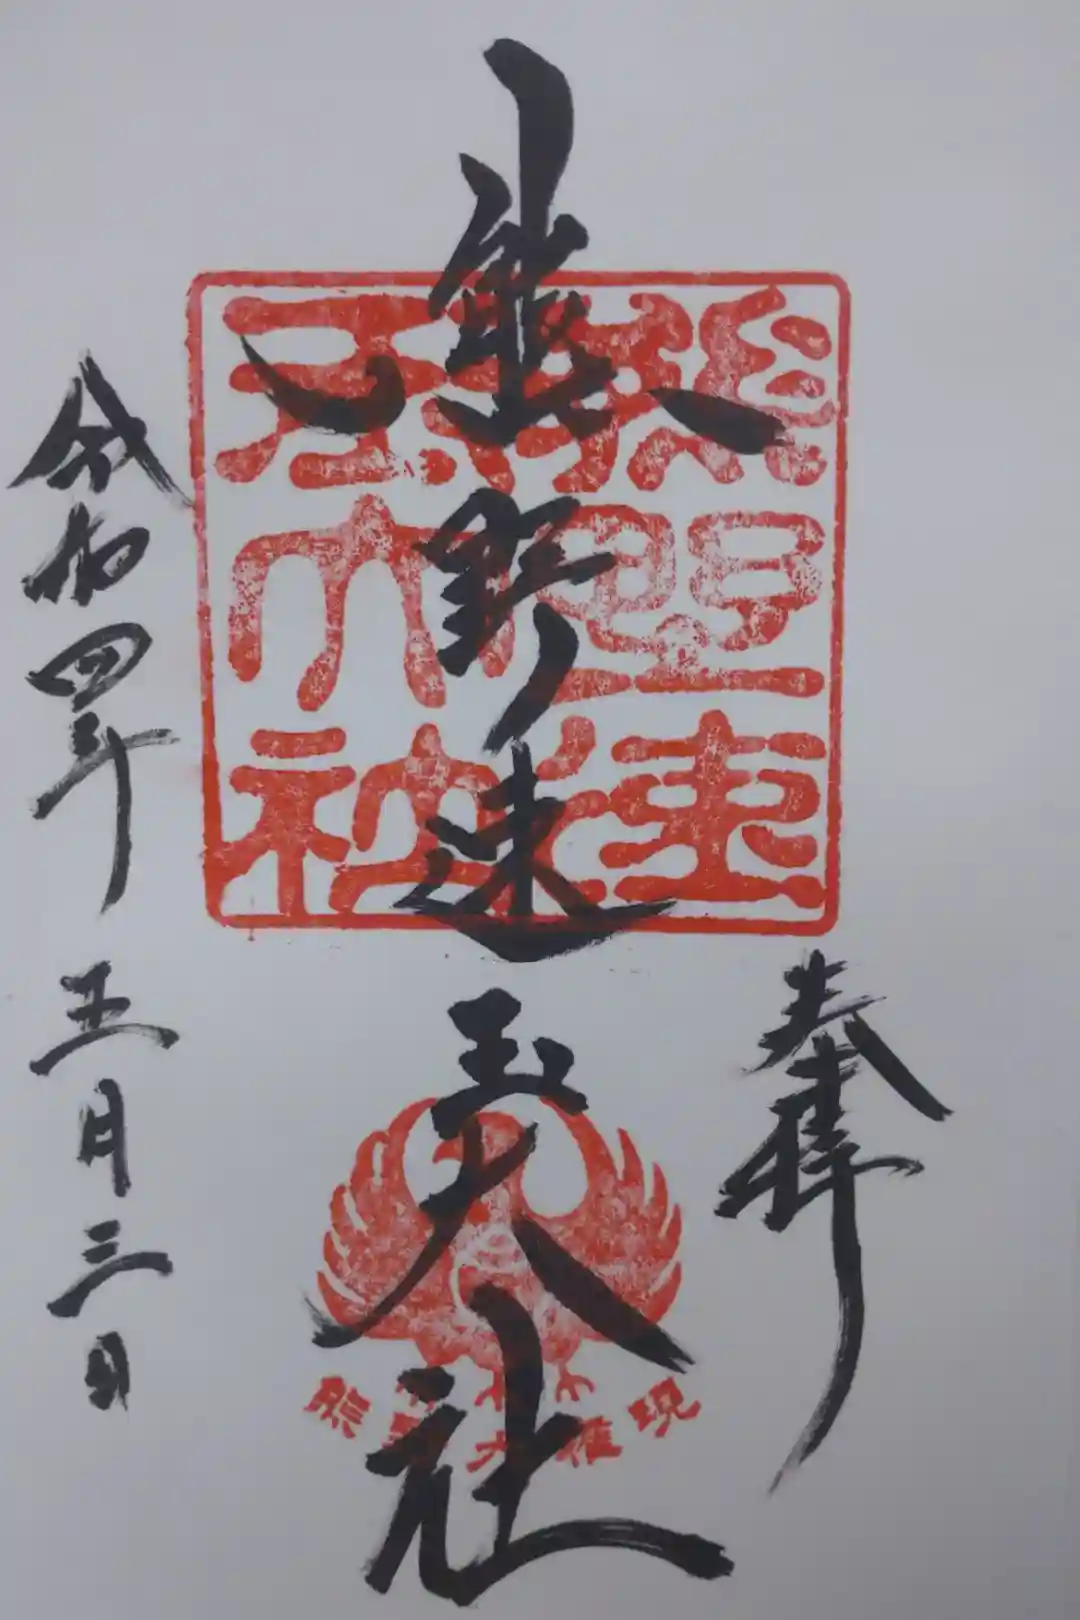 奉拝
熊野速玉大社
令和四年 五月三日
熊野速玉大社
熊野大権現